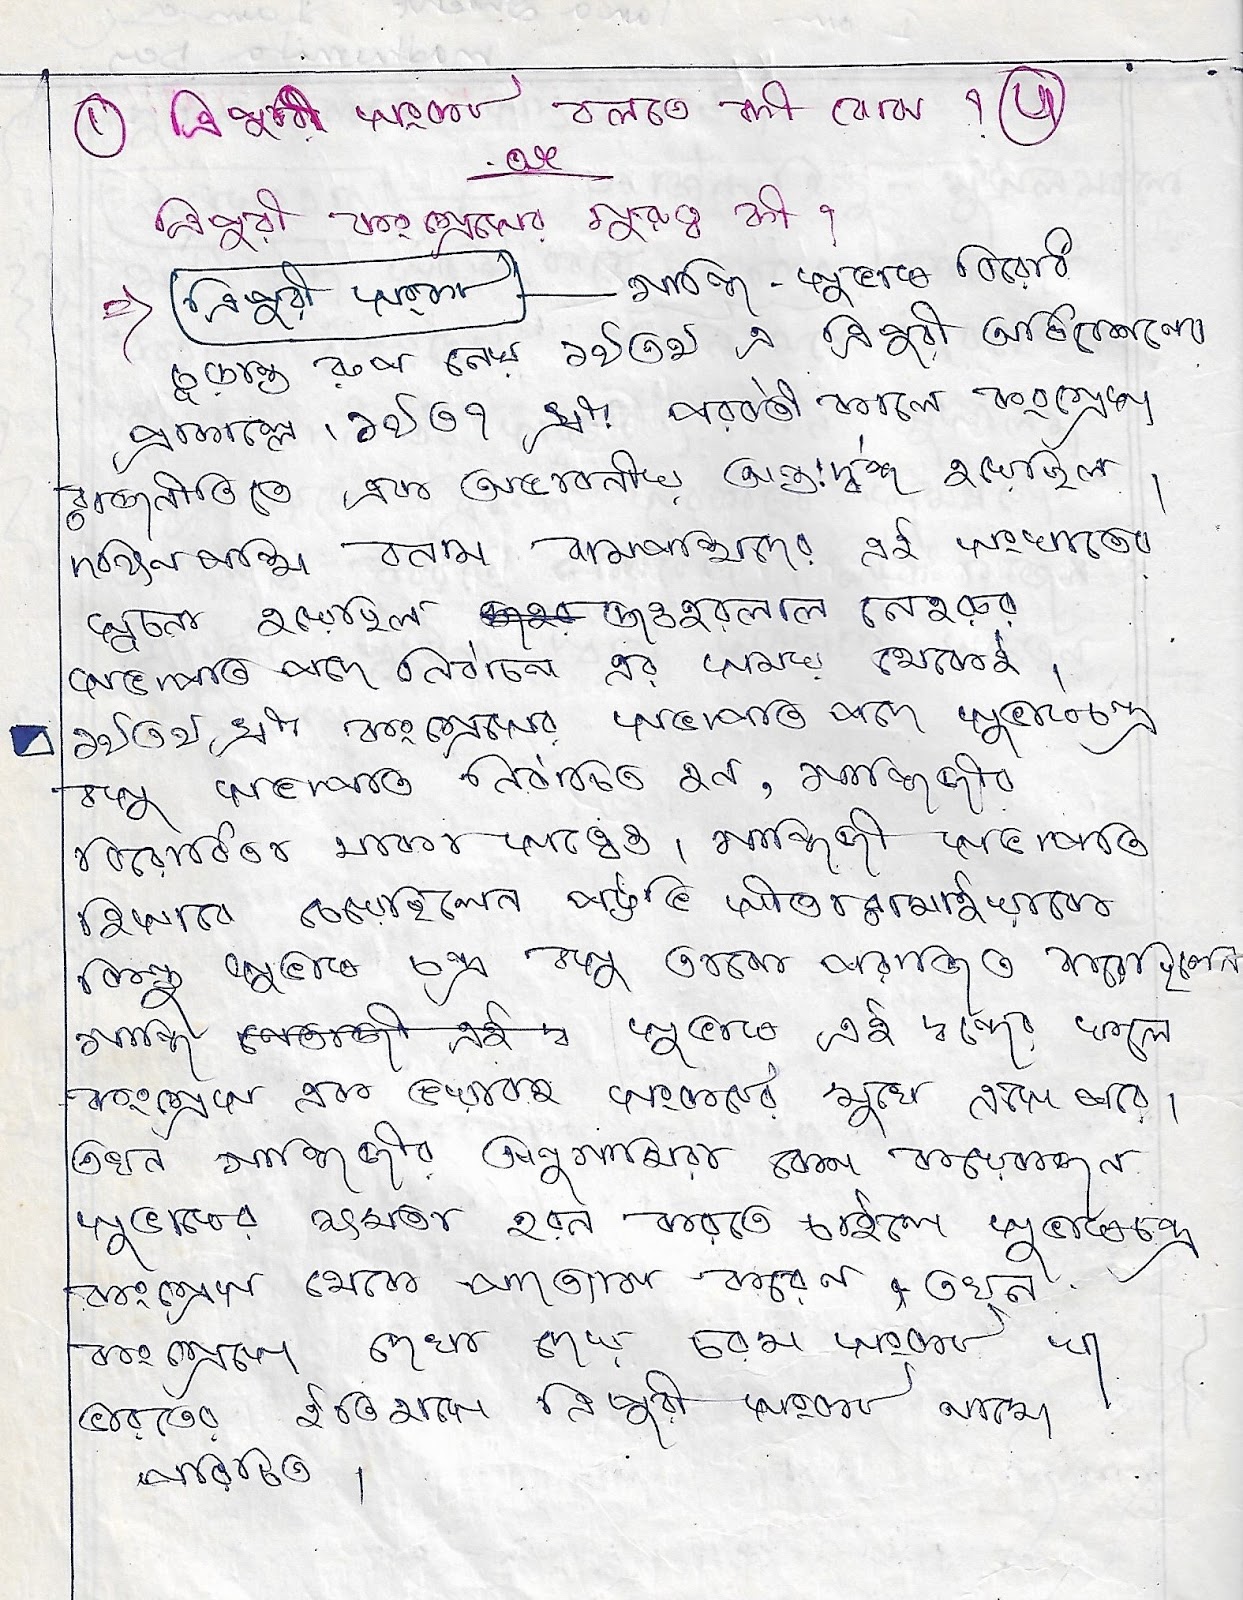 ① ত্রিপুরী সংকট বলতে কী বোঝ ?
অথ
ত্রিপুরী কংগ্রেসের গুরুত্ব কী ?
⇒ ত্রিপুরী সংকট — গান্ধি - সুভাষ বিরোধ
চূড়ান্ত রূপ নেয় ১৯৩৯ এ ত্রিপুরী অধিবেশনের
প্রাক্কালে । ১৯৩৭ খ্রীঃ পরবর্তী কালে কংগ্রেস
রাজনীতিতে এক অভাবনীয় অন্তঃর্দ্বন্দ্ব হয়েছিল ।
দক্ষিণপন্থি বনাম বামপন্থিদের এই সংঘাতের
সূচনা হয়েছিল জওহরলাল নেহরুর
সভাপতি পদে নির্বাচন এর সময় থেকেই ।
১৯৩৯ খ্রীঃ কংগ্রেসের সভাপতি পদে সুভাষচন্দ্র
বসু সভাপতি নির্বাচিত হন , গান্ধিজীর
বিরোধিতা থাকা সত্ত্বেও । গান্ধিজী সভাপতি
হিসাবে চেয়েছিলেন পট্টভি সীতারামাইয়াকে
কিন্তু সুভাষ চন্দ্র বসু তাকে পরাজিত করেছিলেন
গান্ধি সুভাষ এই দ্বন্দ্বের ফলে
কংগ্রেস এক ভয়াবহ সংকটের মুখে এসে পরে ।
তখন গান্ধিজীর অনুগামিরা বেশ কয়েকজন
সুভাষের ক্ষমতা হরন করতে চাইলে সুভাষচন্দ্র
কংগ্রেস থেকে পদত্যাগ করেন , তখন
কংগ্রেসে দেখা দেয় চরম সংকট যা
ভারতের ইতিহাসে ত্রিপুরী সংকট নামে
পরিচিত ।